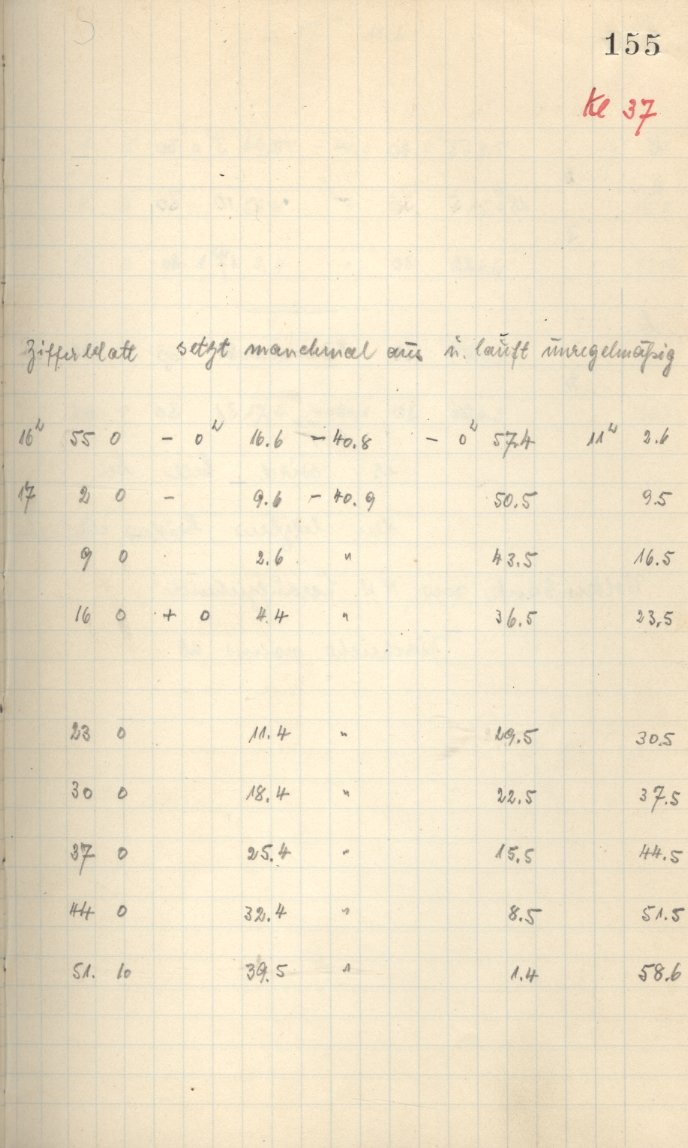 155
Kl 37
Zifferblatt setzt manchmal aus u. läuft unregelmäßig
16ʰ 55 0 - 0ʰ 16.6 - 40.8 - 0ʰ 57.4 11ʰ 2.6
17 2 0 - 9.6 - 40.9 50.5 9.5
9 0 2.6 " 43.5 16.5
16 0 + 0 4.4 " 36.5 23.5
23 0 11.4 " 29.5 30.5
30 0 18.4 " 22.5 37.5
37 0 25.4 " 15.5 44.5
44 0 32.4 " 8.5 51.5
51. 10 39.5 " 1.4 58.6